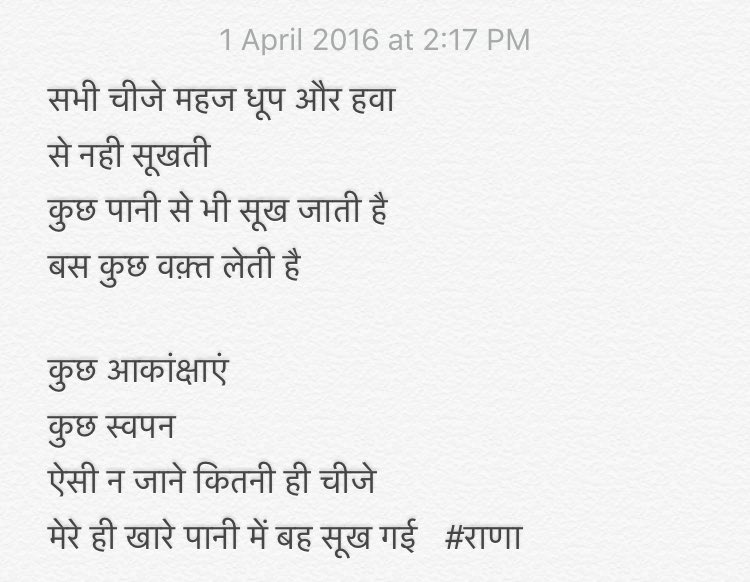 1 April 2016 at 2:17 PM
सभी चीजे महज धूप और हवा
से नही सूखती
कुछ पानी से भी सूख जाती है
बस कुछ वक़्त लेती है
कुछ आकांक्षाएं
कुछ स्वपन
ऐसी न जाने कितनी ही चीजे
मेरे ही खारे पानी में बह सूख गई #राणा